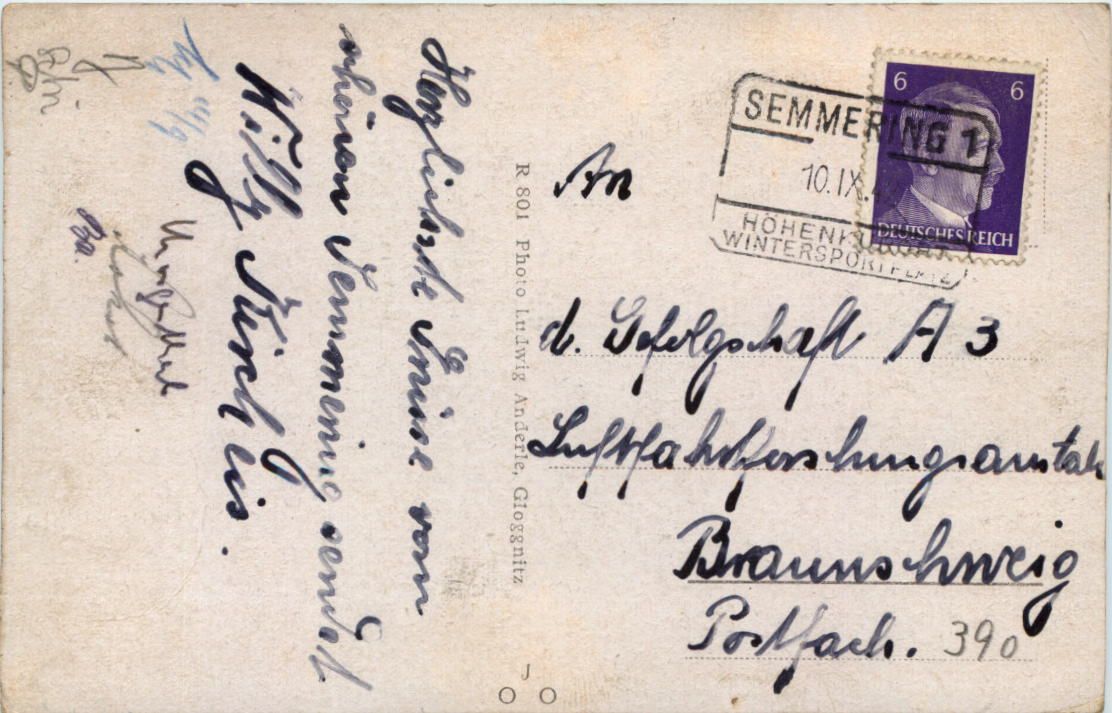 Herzlichste Grüsse vom
schönen Semmering sendet
Willy
11/9
Ba.
R 801 Photo Ludwig Anderle, Gloggnitz
SEMMERING 1
10.IX.
WINTERSPORTPLATZ
6 6
DEUTSCHES REICH
An
d. Gefolgschaft A 3
Luftfahrtforschungsanstalt
Braunschweig
Postfach. 390
J